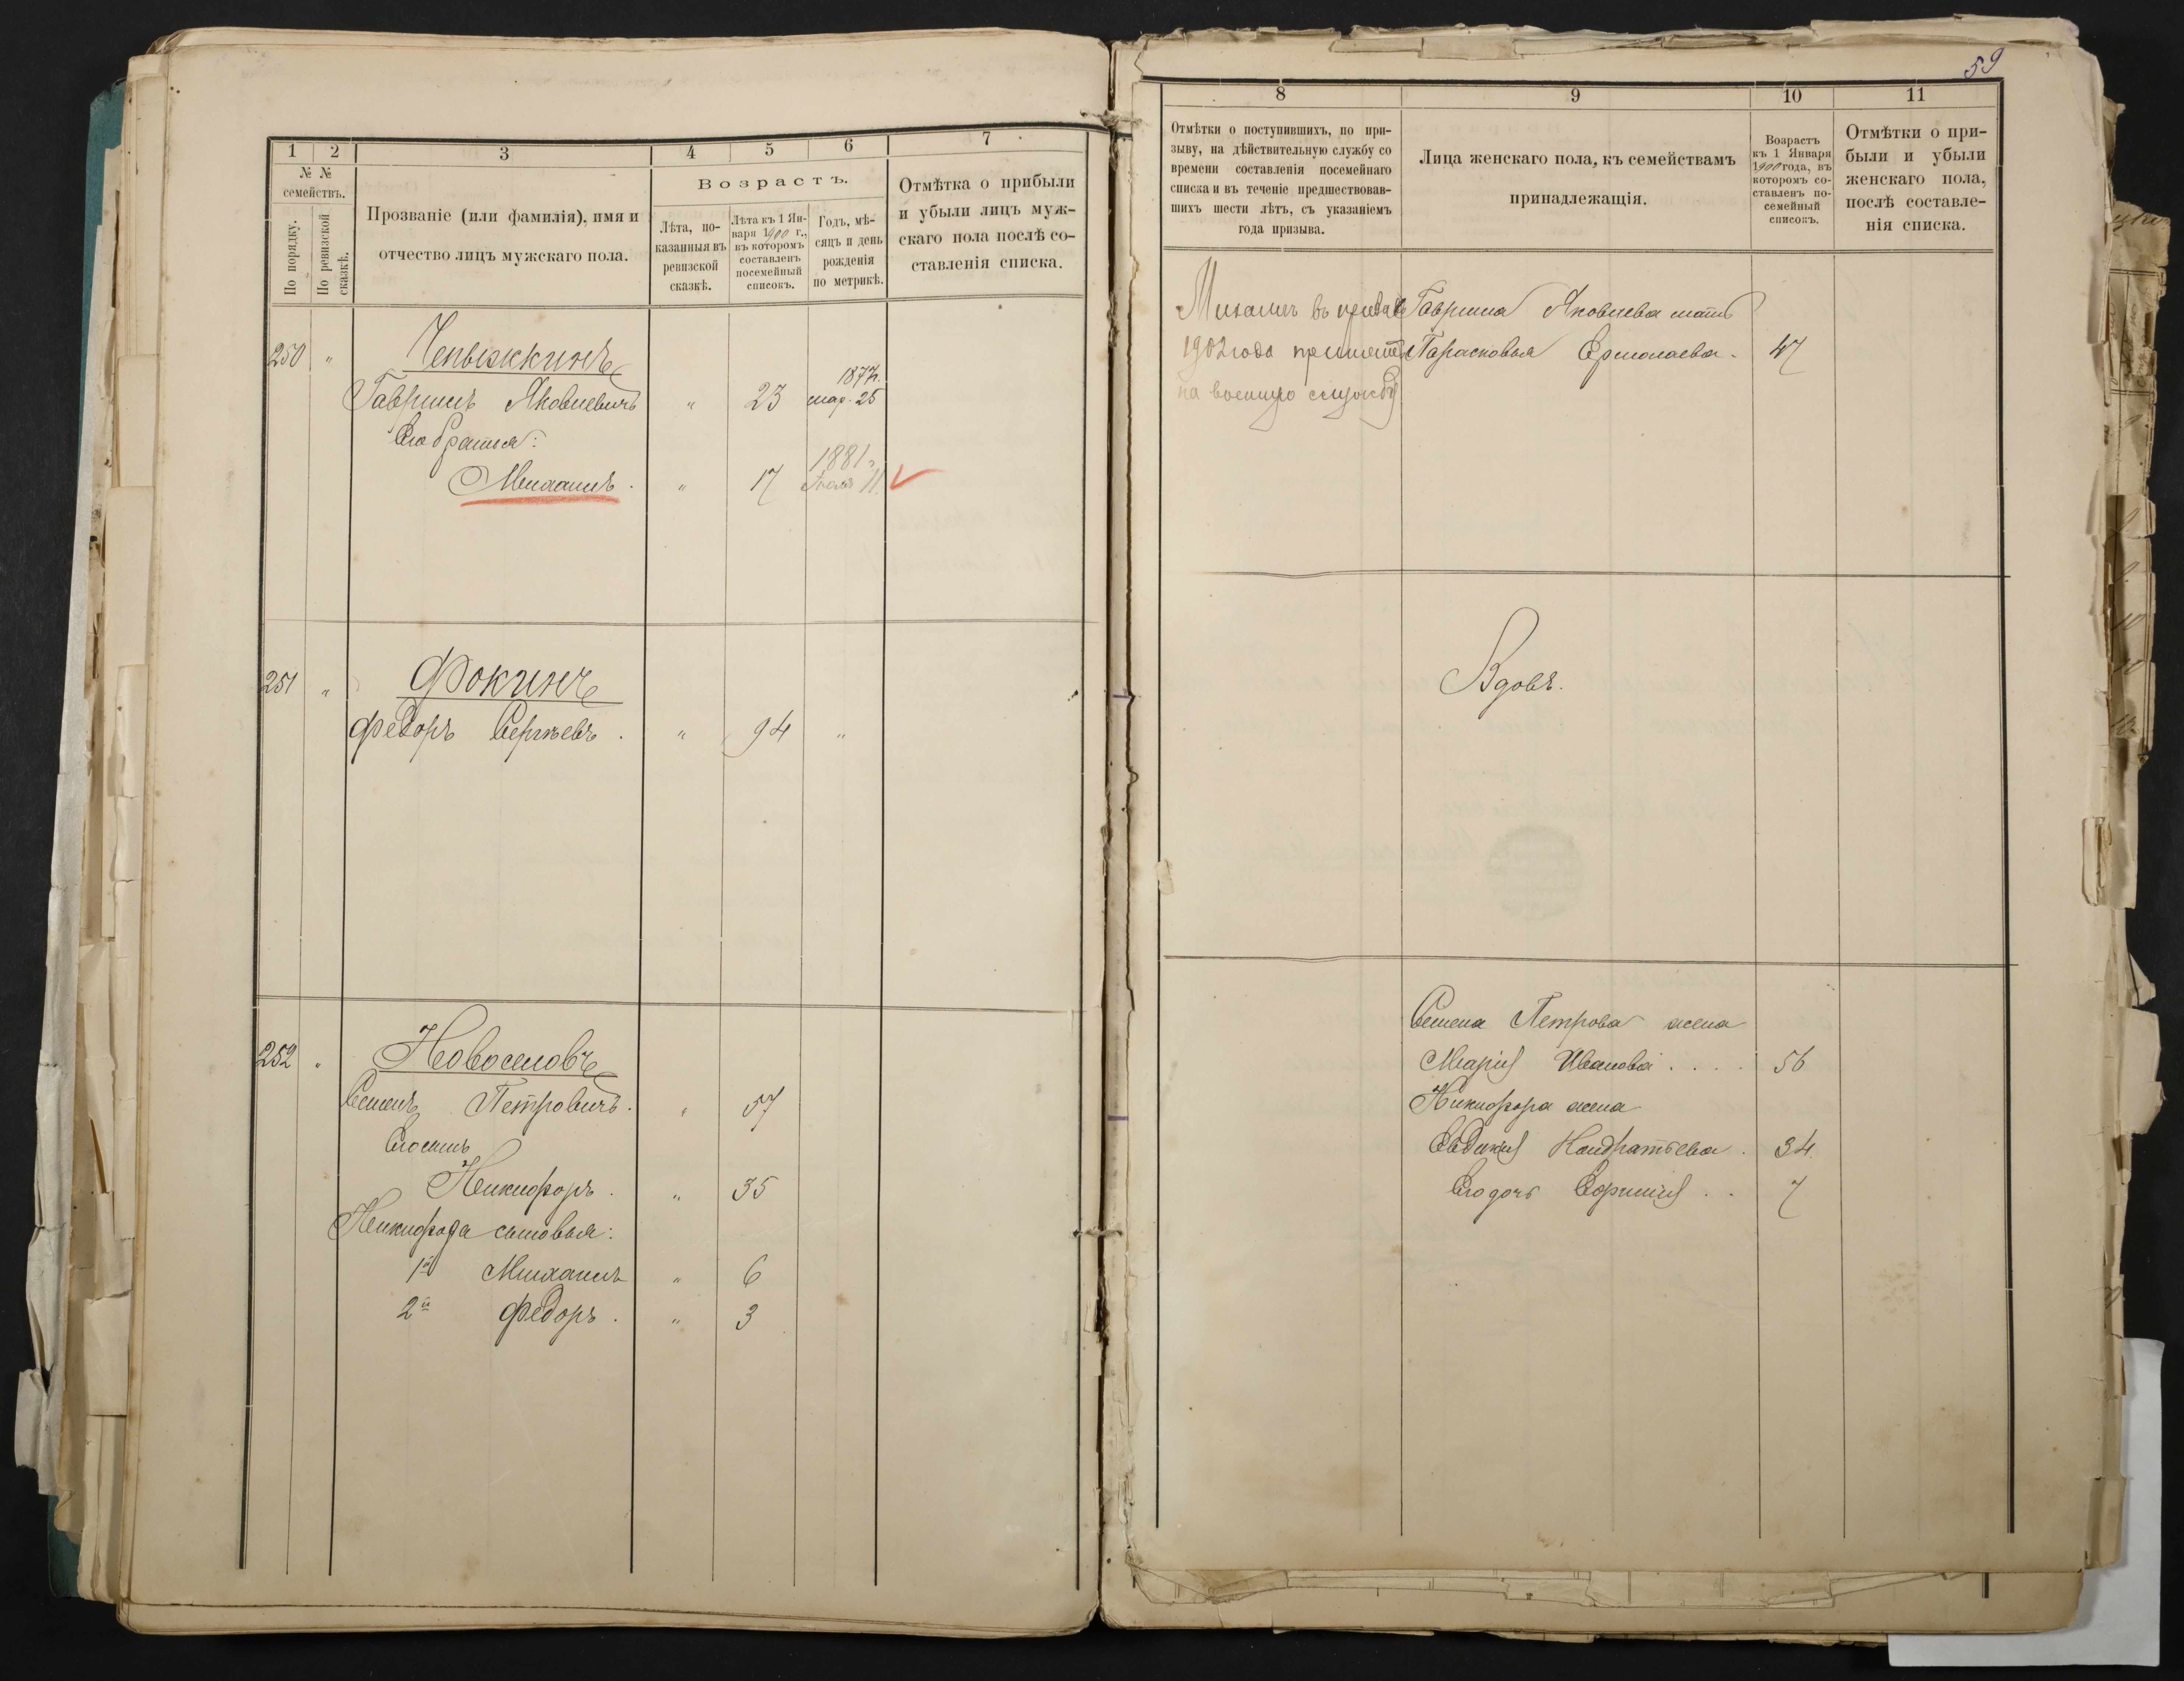 1 2 3 4 5 6 7
№ №
семействъ.
По порядку.
По ревизской сказкѣ.
Прозваніе (или фамилія), имя и
отчество лицъ мужскаго пола.
Возрастъ.
Лѣта, по-
казанныя въ
ревизской
сказкѣ.
Лѣта къ 1 Ян-
варя 1900 г.,
въ которомъ
составленъ
посемейный
списокъ.
Годъ, мѣ-
сяцъ и день
рожденія
по метрикѣ.
Отмѣтка о прибыли
и убыли лицъ муж-
скаго пола послѣ со-
ставленія списка.
250 " Чепыжкинъ
1877г.
Гавріилъ Яковлевичъ " 23 мар. 25
Его братья:
1881г.
Михаилъ. " 17 Іюля 11.
251 " Фокинъ
Федоръ Сергѣевъ. " 94 "
252 " Новоселовъ
Семенъ Петровичъ. " 57
Его сынъ
Никифоръ. " 35
Никифора сыновья:
1й Михаилъ " 6
2й Федоръ. " 3
59
8 9 10 11
Отмѣтки о поступившихъ, по при-
зыву, на дѣйствительную службу со
времени составленія посемейнаго
списка и въ теченіе предшествовав-
шихъ шести лѣтъ, съ указаніемъ
года призыва.
Лица женскаго пола, къ семействамъ
принадлежащія.
Возрастъ
къ 1 Января
1900 года, въ
которомъ со-
ставленъ по-
семейный
списокъ.
Отмѣтки о при-
были и убыли
женскаго пола,
послѣ составле-
нія списка.
Михаилъ въ призывѣ
1902 года принятъ
на военную службу
Гавриила Яковлева мать
Парасковья Ермолаева. 47
Вдовъ.
Семена Петрова жена
Марія Иванова . . . . 56
Никифора жена
Евдокія Кондратьева. 34.
Его дочь Ефимія . . 7